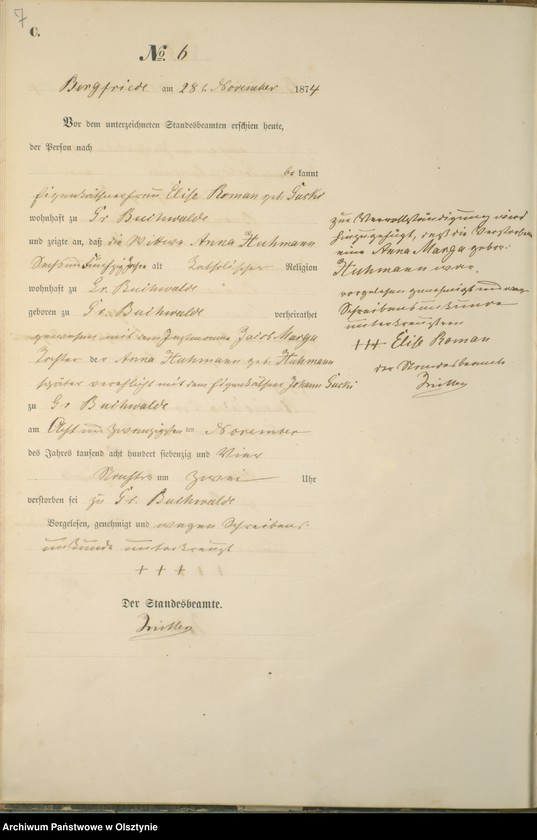 7
C.
№ 6
Bergfriede am 28t November 1874
Vor dem unterzeichneten Standesbeamten erschien heute,
der Person nach
be kannt
Eigenkäthnerfrau Elise Roman geb.
wohnhaft zu Gr Buchwalde
und zeigte an, daß die Wittwe Anna Huhmann
Sechs und Fünfzig Jahre alt katholischer Religion
wohnhaft zu Gr. Buchwalde
geboren zu Gr. Buchwalde verheirathet
gewesen mit dem Instmann Jacob Marga
Tochter der Anna Huhmann geb. Huhmann
später verehlicht mit dem Eigenkäthner Johann
zu Gr Buchwalde
am Acht und zwanzigsten ten November
des Jahres tausend acht hundert siebenzig und Vier
Nachts um zwei Uhr
verstorben sei zu Gr. Buchwalde
Vorgelesen, genehmigt und wegen Schreibens-
unkunde unterkreuzt
+ + +
Der Standesbeamte.
Zur Vervollständigung wird
hinzugefügt, daß die Verstorbene
eine Anna Marga geborne
Huhmann war.
vorgelesen genehmigt und wegen
Schreibensunkunde
unterkreuzt
+++ Elise Roman
der Standesbeamte
Archiwum Państwowe w Olsztynie